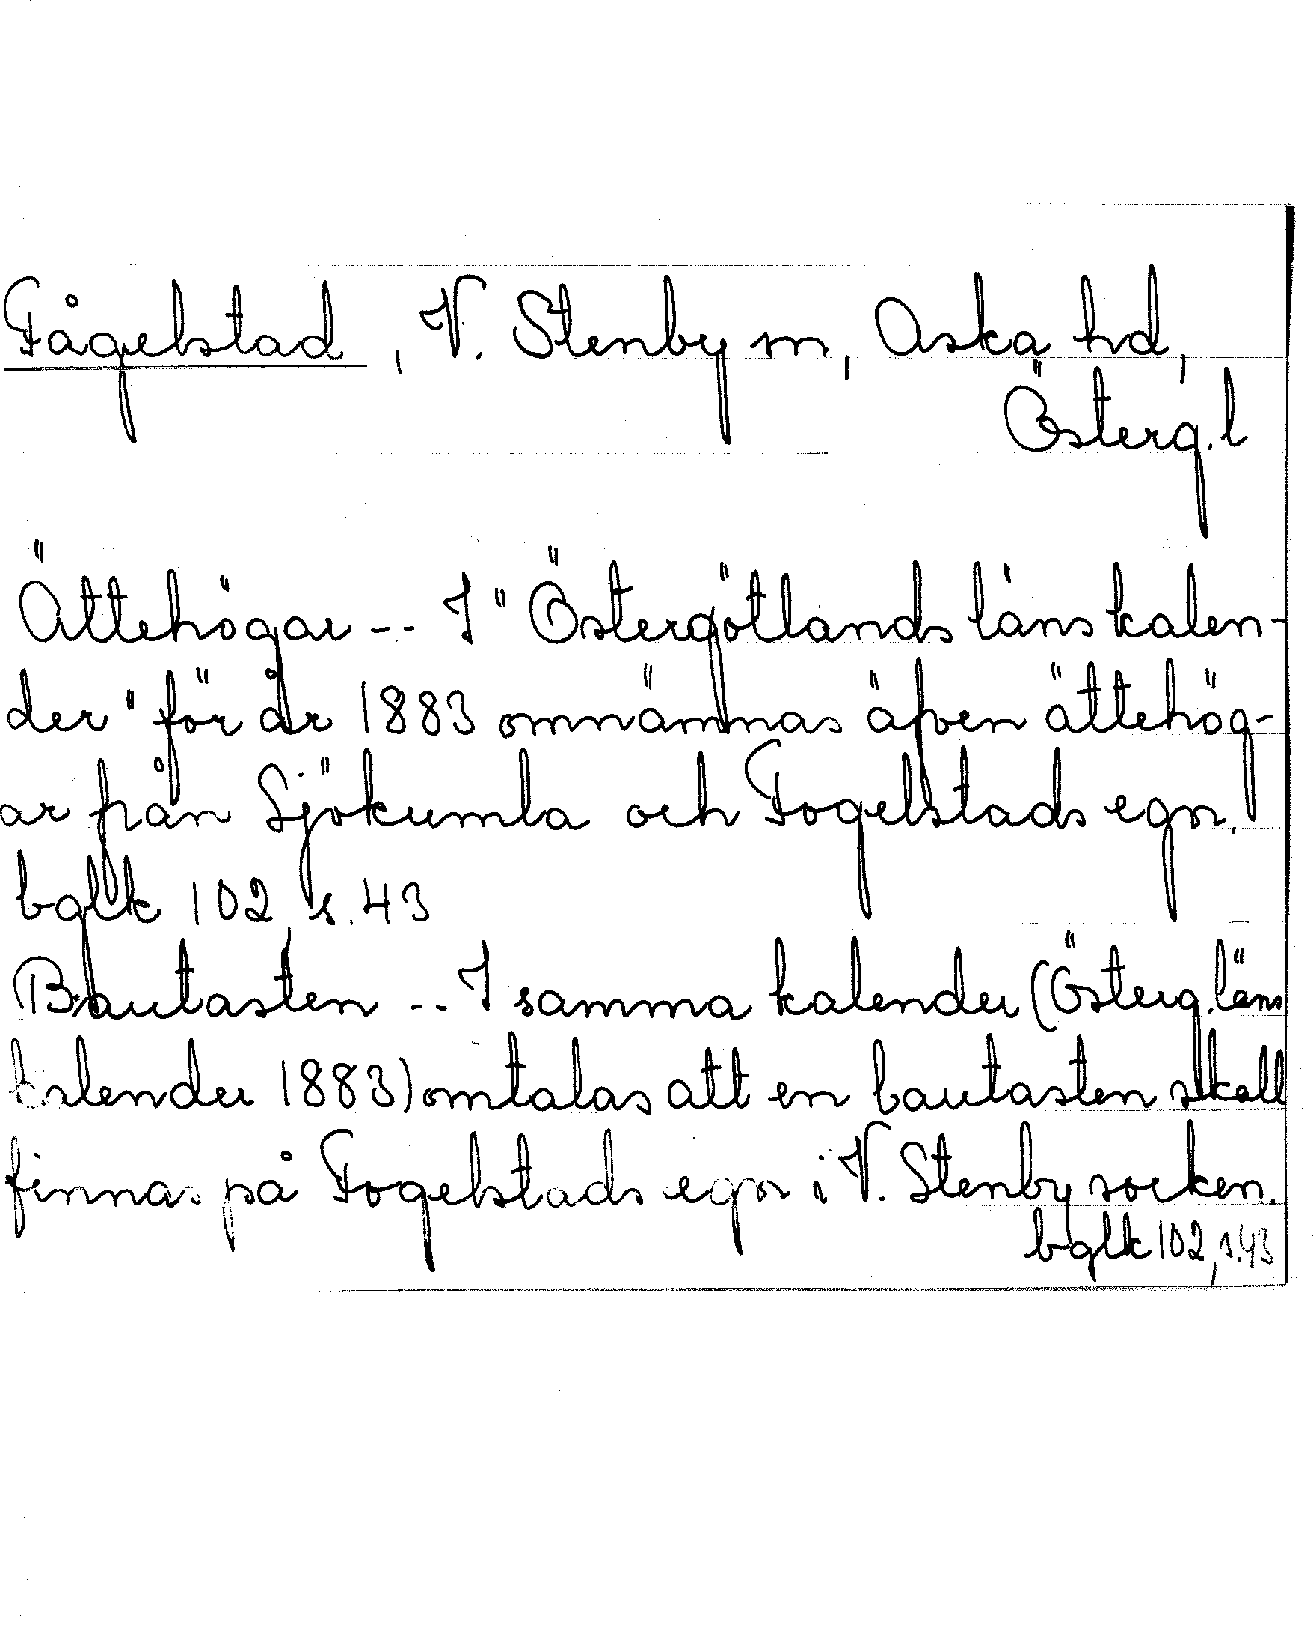 Fågelstad, V. Stenby sn, Aska hd,
Österg. l
Ättehögar -- I "Östergötlands läns kalen-
der" för år 1883 omnämnas äfven ättehög-
ar från Sjökumla och Fogelstads egor.
bglk 102, s. 43
Bautasten -- I samma kalender (Österg. läns
kalender 1883) omtalas att en bautasten skall
finnas på Fogelstads egor i V. Stenby socken.
bglk 102, s. 43